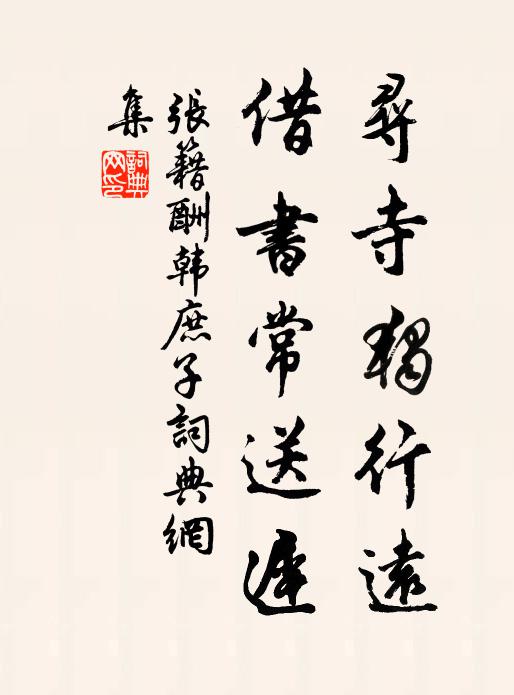 尋寺獨行遠
借書常送遲
張籍酬韩庶子詞典網
集
詞典網印